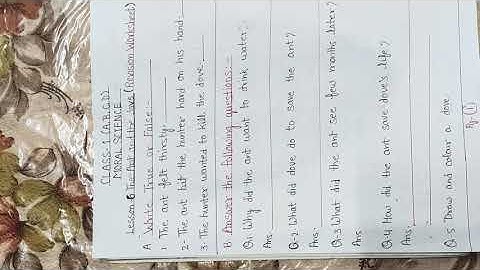 CLASS-1 (A,B,C,D)
MORAL SCIENCE
Lesson 6 The Ant and the dove (Revision Worksheet)
A Write True or False:-
1 The ant felt thirsty.
2- The ant bit the hunter hand on his hand.
3. The hunter wanted to kill the dove.
B. Answer the following questions:-
Q.1 Why did the ant want to drink water.
Ans
Q-2. What did dove do to save the ant?
Ans.
Q-3 What did the ant see few months later?
Ans
Q.4 How did the ant save dove's life?
Ans.
Q-5 Draw and colour a dove.
Pg-(1)